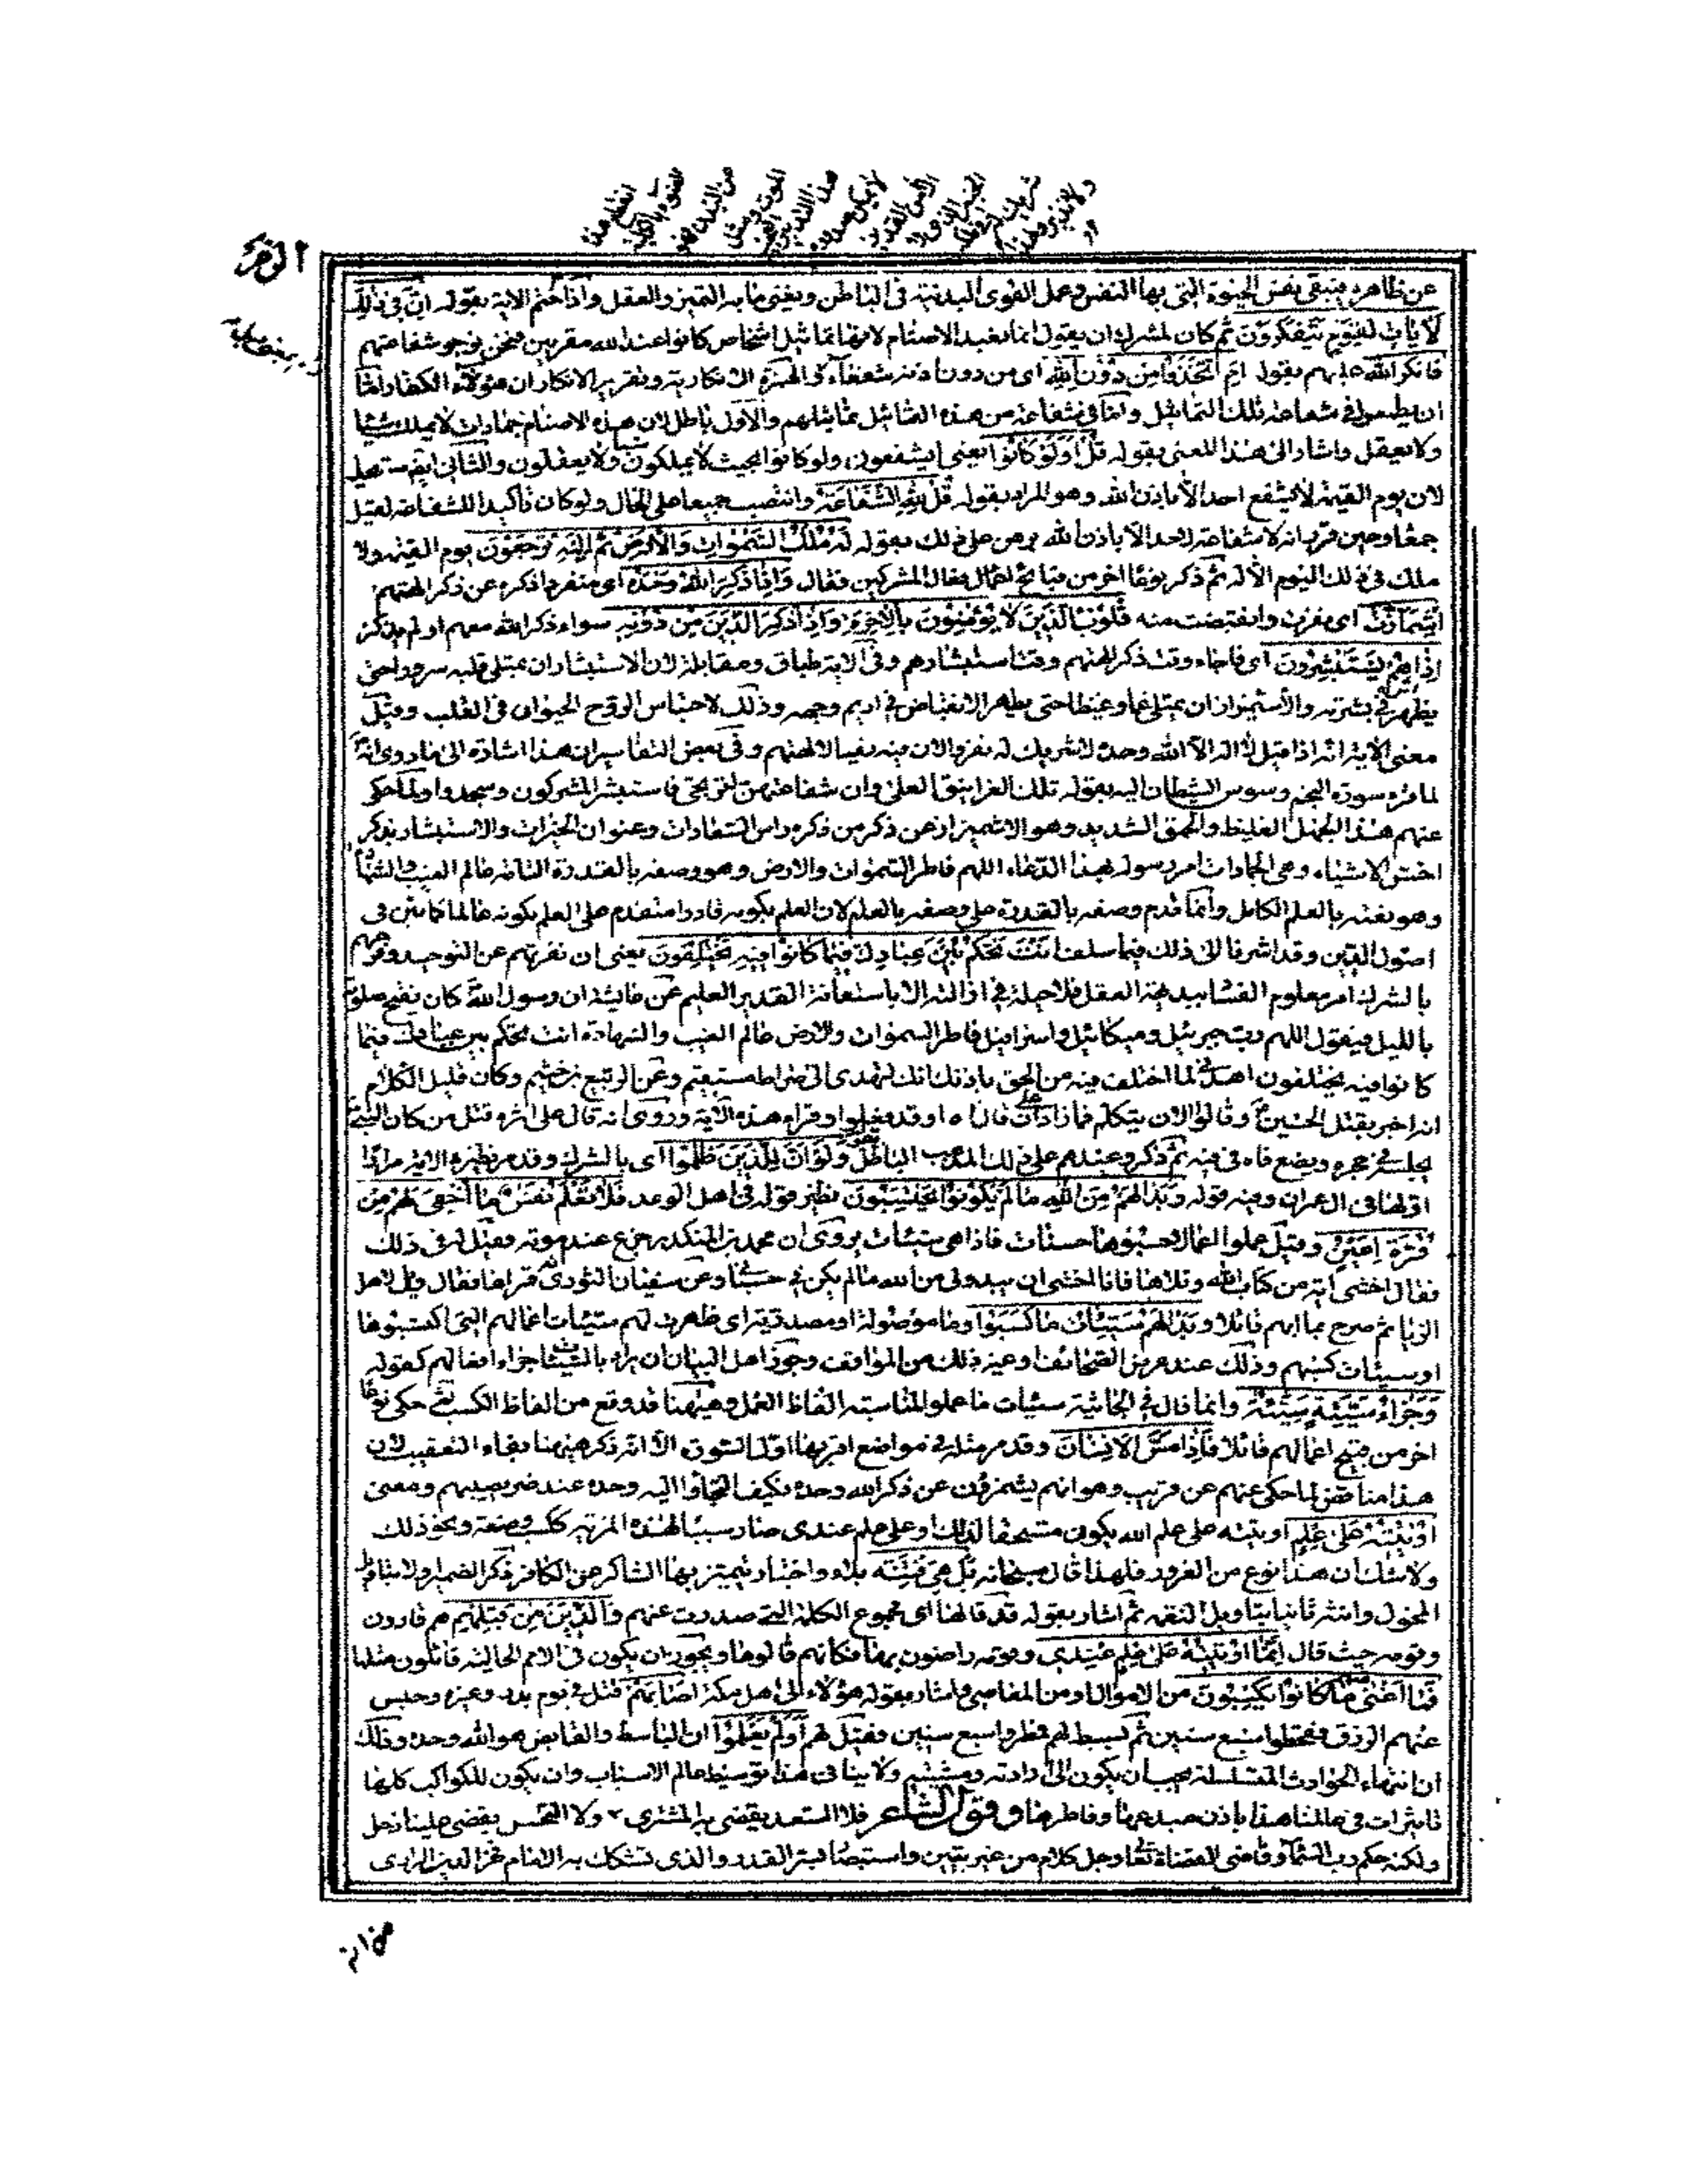 عن ظاهره فيبقى نفس الحيوة التى بها النفس وعمل القوى البدنية فى الباطن ويفنى ما به التميز والعقل واذا ختم الاية بقوله ان فى ذلك
لآيات لقوم يتفكرون ثم كان لمشرك ان يقول انما نعبد الاصنام لانها تماثيل اشخاص كانوا عند الله مقربين فنحن نرجو شفاعتهم
فانكر الله عليهم بقوله ام اتخذوا من دون الله اى من دون اذنه شفعاء والهمزة انكارية وتقرير الانكار ان هؤلاء الكفار اما
ان يطمعوا فى شفاعة تلك التماثيل واما فى شفاعة من هذه التماثيل تماثيلهم والاول باطل لان هذه الاصنام جمادات لا يملك شيئا
ولا تعقل واشار الى هذا المعنى بقوله قل اولو كانوا يعنى ايشفعون ولو كانوا بحيث لا يملكون شيئا ولا يعقلون والثانى ايضا مستحيل
لان يوم القيمة لا يشفع احد الا باذن الله وهو المراد بقوله قل لله الشفاعة وانتصب جميعا على الحال ولو كان تأكيدا للشفاعة لقيل
جمعاء وحين قرر انه لا شفاعة لاحد الا باذن الله برهن على ذلك بقوله له ملك السموات والارض ثم اليه ترجعون يوم القيمة ولا
ملك فى ذلك اليوم الا له ثم ذكر نوعا اخر من قبائح افعال المشركين فقال واذا ذكر الله وحده اى منفردا ذكره عن ذكر الهتهم
اشمازت اى نفرت وانقبضت منه قلوب الذين لا يؤمنون بالاخرة واذا ذكر الذين من دونه سواء ذكر الله معهم او لم يذكر
اذا هم يستبشرون اى فاجاء وقت ذكر الهتهم وقت استبشارهم وفى الاية طباق ومقابلة لان الاستبشار ان يمتلى قلبه سرورا حتى
يظهر فى بشرته والاشمئزاز ان يمتلى غما وغيظا حتى يظهر الانقباض فى اديم وجهه وذلك لاحتباس الروح الحيوانى فى القلب وقيل
معنى الاية انه اذا قيل لا اله الا الله وحده لا شريك له نفروا لان فيه نفيا لالهتهم وفى بعض التفاسير ان هذا اشارة الى ما روى انه
لما قرء سورة النجم وسوس الشيطان اليه بقوله تلك الغرانيق العلى وان شفاعتهن لترتجى فاستبشر المشركون وسجدوا ولما حكى
عنهم هذا الجهل الغليظ والحمق الشديد وهو الاشمئزاز عن ذكر من ذكره راس السعادات وعنوان الخيرات والاستبشار بذكر
اخس الاشياء وهى الجمادات امر رسوله بهذا الدعاء اللهم فاطر السموات والارض وهو وصفه بالقدرة التامة عالم الغيب والشهادة
وهو نعته بالعلم الكامل وانما قدم وصفه بالقدرة على وصفه بالعلم لان العلم بكونه قادرا متقدم على العلم بكونه عالما كما بين فى
اصول الدين وقد اشرنا الى ذلك فيما سلف انت تحكم بين عبادك فيما كانوا فيه يختلفون يعنى ان نفرتهم عن التوحيد وفرحهم
بالشرك امر معلوم الفساد ببديهة العقل فلا حيلة فى ازالته الا باستعانة القدير العليم عن عائشة ان رسول الله كان يفتح صلوته
بالليل فيقول اللهم رب جبرئيل وميكائيل واسرافيل فاطر السموات والارض عالم الغيب والشهادة انت تحكم بين عبادك فيما
كانوا فيه يختلفون اهدنى لما اختلف فيه من الحق باذنك انك لتهدى الى صراط مستقيم وعن الربيع بن خثيم وكان قليل الكلام
انه اخبر بقتل الحسين وقالوا الان يتكلم فما زاد على ان قال اه او قد فعلوا وقراء هذه الآية وروى انه قال على اثره قتل من كان النبى
يجلسه فى حجره ويضع فاه فى فيه ثم ذكر وعيدهم على ذلك المذهب الباطل بقوله ولو ان للذين ظلموا اى بالشرك وقد مر نظيره الاية مرارا
اولها فى ال عمران وفيه قوله وبدا لهم من الله ما لم يكونوا يحتسبون نظير قوله فى اهل الوعد فلا تعلم نفس ما اخفى لهم من
قرة اعين وقيل عملوا اعمالا حسبوها حسنات فاذا هى سيئات يروى ان محمد بن المنكدر جزع عند موته فقيل له فى ذلك
فقال اخشى اية من كتاب الله وتلاها فانا اخشى ان يبدو لى من الله ما لم يكن فى حسبانى وعن سفيان الثورى انه قراها فقال ويل لاهل
الريا ثم صرح بما ابهم قائلا وبدا لهم سيئات ما كسبوا وما موصولة او مصدرية اى ظاهرت لهم سيئات اعمالهم التى اكتسبوها
او سيئات كسبهم وذلك عند عرض الصحائف او غير ذلك من المواقف وجوز اهل البيان ان يراد بالسيئات جزاء افعالهم كقوله
وجزاء سيئة سيئة وانما قال فى الجاثية سيئات ما عملوا لمناسبة الفاظ العمل وههنا قد وقع من الفاظ الكسب ثم حكى نوعا
اخر من قبيح اعمالهم قائلا فاذا مس الانسان وقد مر مثله فى مواضع اقربها اول السورة الا انه ذكر ههنا بفاء التعقيب لان
هذا مناقض لما حكى عنهم عن قريب وهو انهم يشمئزون عن ذكر الله وحده فكيف التجاوا اليه وحده عند ضر يصيبهم ومعنى
اوتيته على علم اوتيته على علم الله بكون مستحقا لذلك او على علم عندى صار سببا لهذه المزية ككسب وصنعة ونحو ذلك
ولا شك ان هذا نوع من الغرور فلهذا قال سبحانه بل هى فتنة بلاء واختبار يتميز بها الشاكر عن الكافر ذكر الضمير اولا بتاويل
المخول وانث ثانيا بتاويل النعمة ثم اشار بقوله قد قالها اى مجموع الكلمة التى صدرت عنهم والذين من قبلهم هم قارون
وقومه حيث قال انما اوتيته على علم عندى وقومه راضون بها فكانهم قالوها ويجوز ان يكون فى الامم الخالية قائلون مثلها
فما اغنى عنهم ما كانوا يكسبون من الاموال او من المعاصى واشار بقوله هؤلاء الى اهل مكة اصابهم قتل فى يوم بدر وغيره وحبس
عنهم الرزق فقحطوا سبع سنين ثم بسط لهم فمطروا سبع سنين فقيل لهم اولم يعلموا ان الباسط والقابض هو الله وحده وذلك
ان انتهاء الحوادث المتسلسلة يجب ان يكون الى ارادته ومشيته ولا ينافى هذا توسيط عالم الاسباب وان يكون للكواكب كلها
تاثيرات فى عالمنا هذا باذن مبدعها وفاطرها وقول الشاعر فلا السعد يقضى به المشترى ولا النحس يقضى علينا زحل
ولكنه حكم رب السما وقاضى القضاة تعالى وجل كلام من غير يقين واستبصار لسر القدر والذى تشكك به الامام فخر الدين الرازى